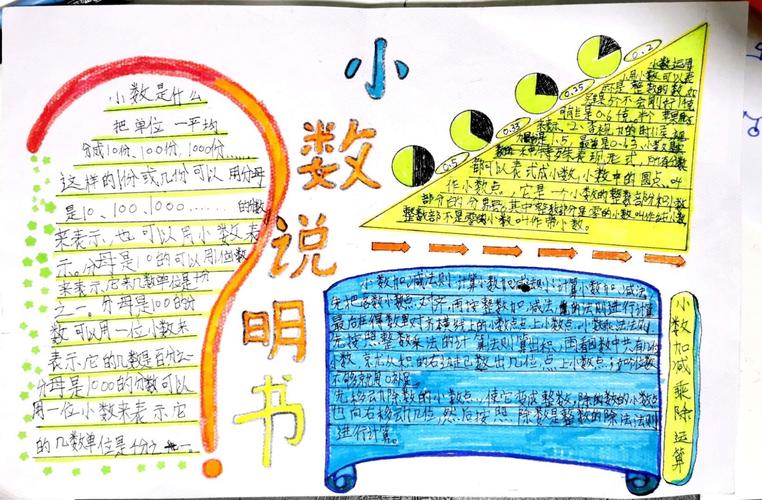 小数说明书
小数是什么
把单位一平均
分成10份、100份、1000份……
这样的1份或几份可以用分母
是10、100、1000……的数
来表示、也可以用小数表
示。分母是10的可以用
来表示、它的几数单位是十分
之一。分母是100的分
数可以用一位小数来
表示它的几数是百分之一
分母是1000的分数可以
用一位小数来表示它
的几数单位是十分之一。
0.5
0.35
0.25
0.2
小数运用
用小数可以表
都可以表式成小数,小数中的圆点叫
作小数点,它是一个小数的整数部份和小数
部分的分界号,其中整数部分是零的小数叫作纯小数,
整数部不是零的小数叫作带小数。
小数加减法则计算小数加减法则小计算小数加、减法
先把各数小数点对齐再按整数加、减法的法则进行计算
最后在得数里对齐横线上的小数点点上小数点,小数乘法法则
先按照整数乘法的计算法则算出积,再看因数中共有几位
小数,就从积的右边起数出几位,点上小数点,如位数
不够就用0补足。
先移动除数的小数点,使它变成整数,除的数的小数点
也向右移动几位,然后按照除数是整数的除法法则
进行计算。
小数加减乘除运算